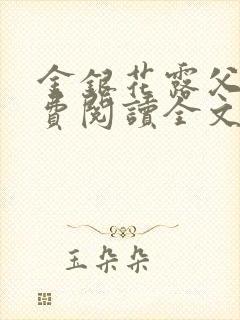 金銀花露父
費閱讀全文
玉朵朵